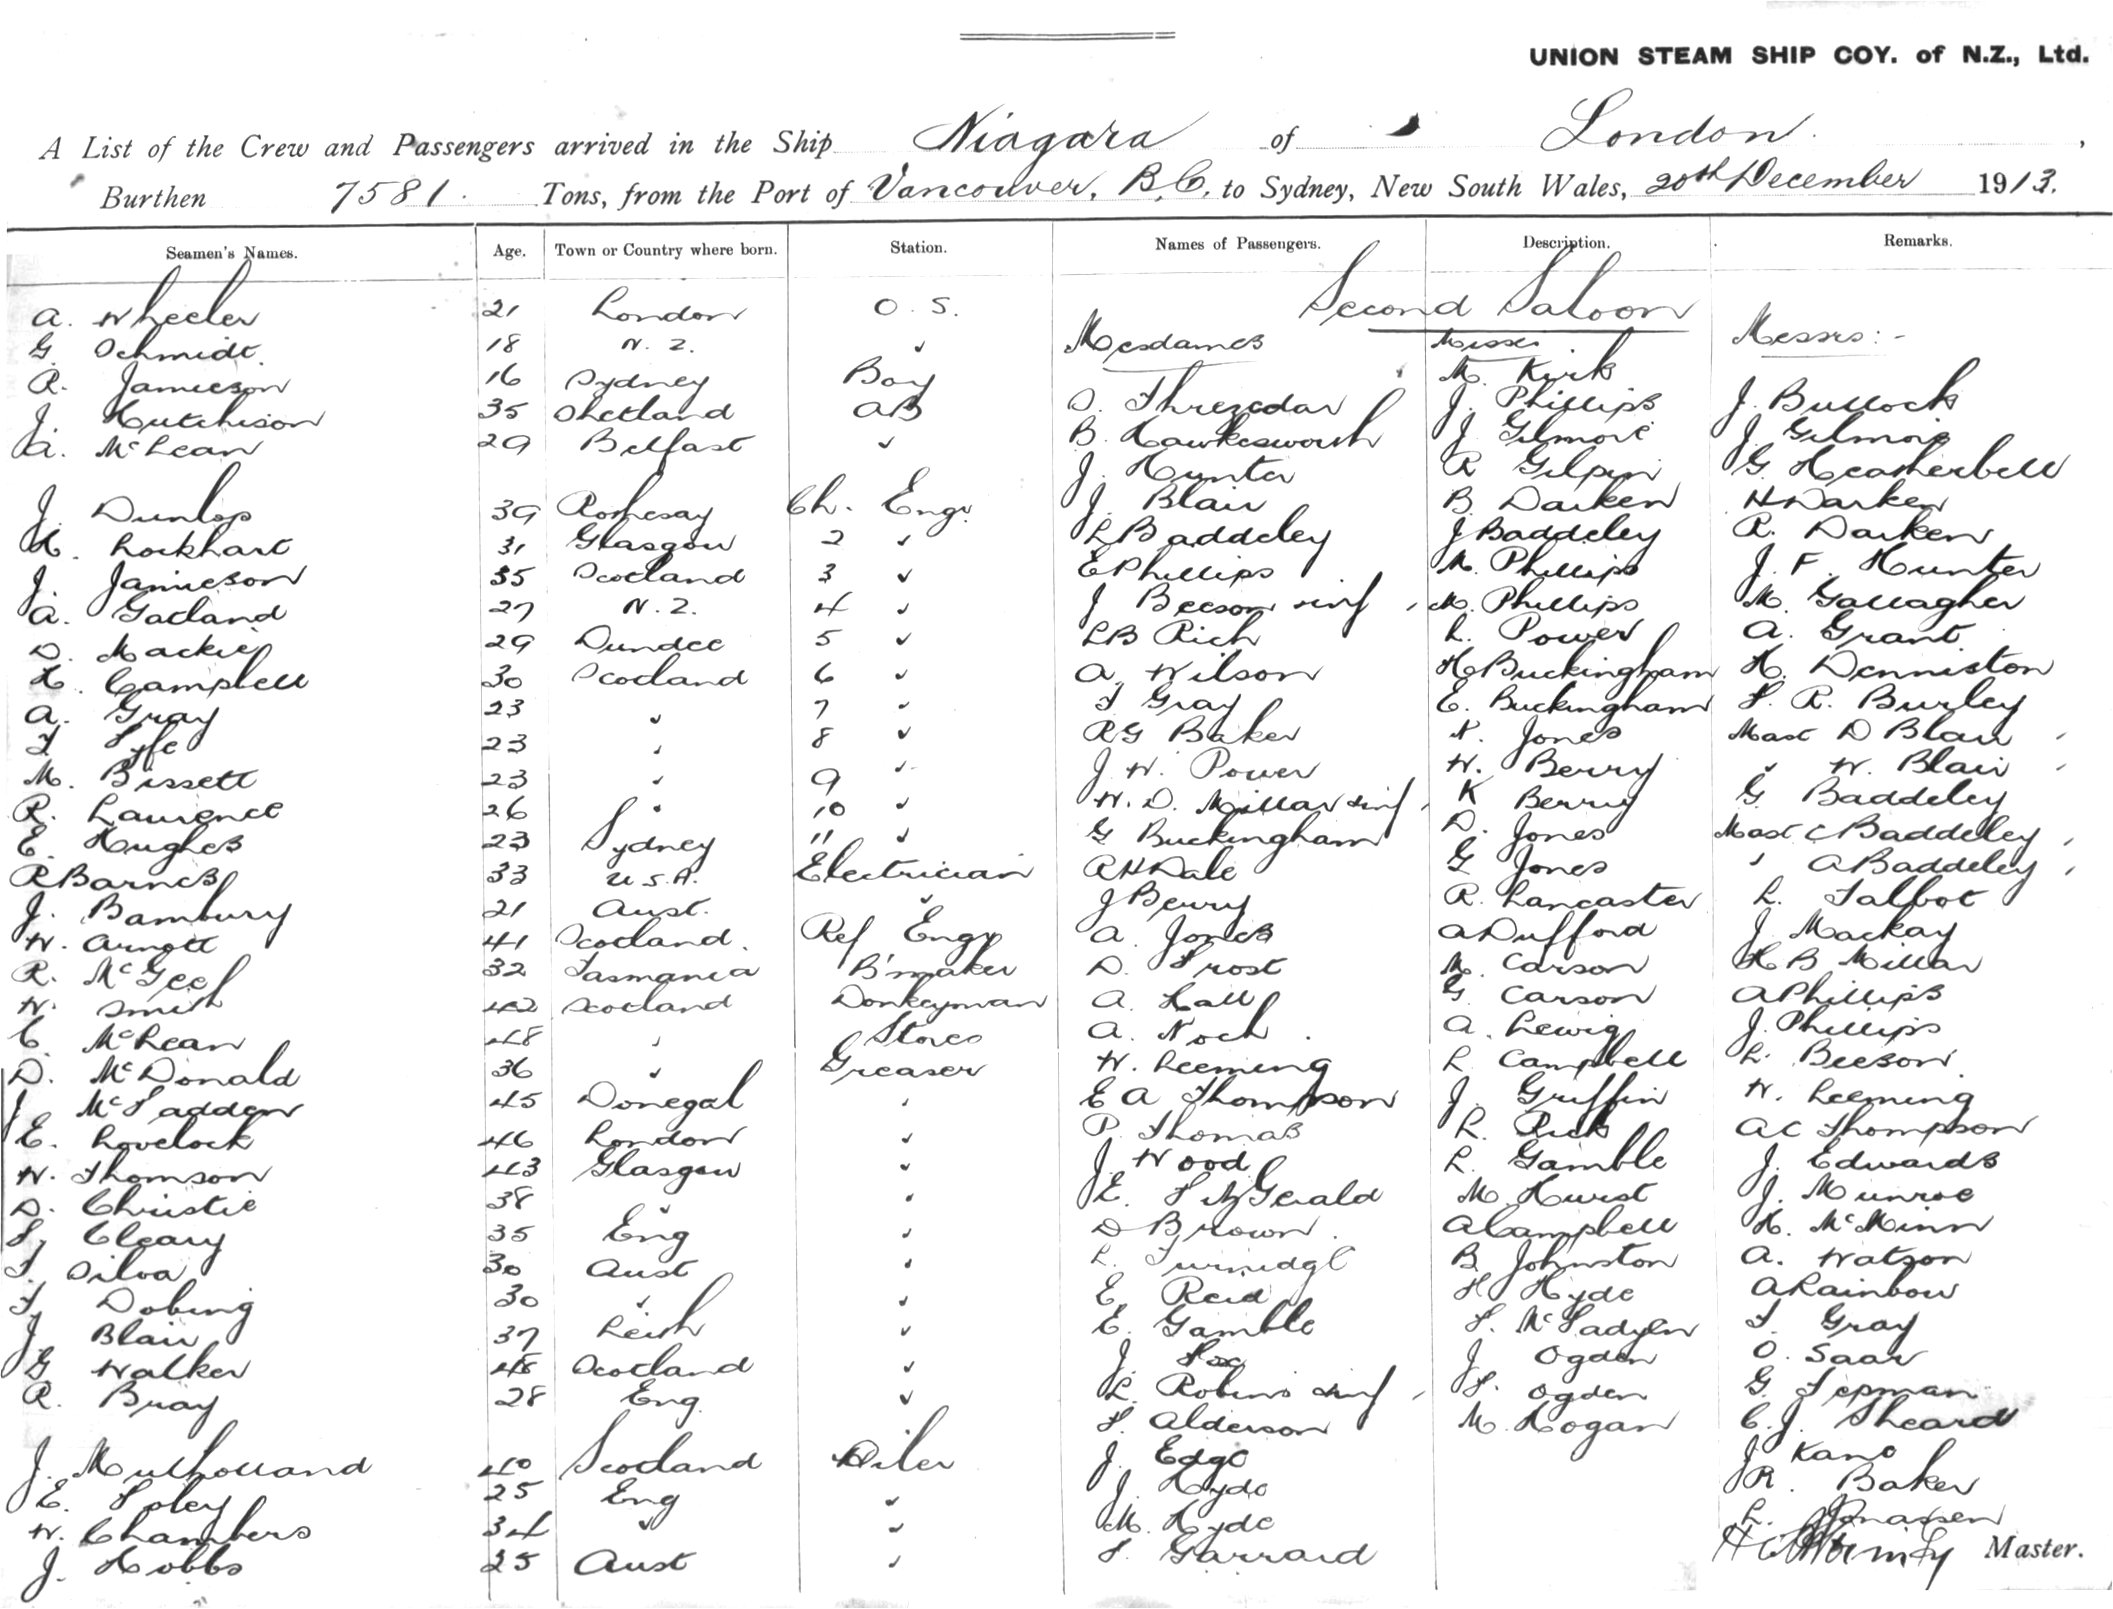 UNION STEAM SHIP COY. of N.Z., Ltd.
A List of the Crew and Passengers arrived in the Ship Niagara of London,
Burthen 7581. Tons, from the Port of Vancouver, B.C. to Sydney, New South Wales, 20th December 1913.
Seamen's Names. Age. Town or Country where born. Station. Names of Passengers. Description. Remarks.
Second Saloon
A. Wheeler 21 London O.S.
Mesdames Misses Messrs:-
G. Schmidt 18 N.Z. "
M. Kirk
R. Jamieson 16 Sydney Boy
J. Hutchison 35 Shetland AB
J. Phillips J. Bullock
A. McLean 29 Belfast "
B. Hawkesworth J. Gilmore J. Gilmore
J. Hunter R Gilpin G Heatherbell
J. Dunlop 39 Rothesay Ch. Engr.
J. Blair B. Darken H Darken
H. Lockhart 31 Glasgow 2 "
L Baddeley J Baddeley R. Darken
J. Jamieson 35 Scotland 3 "
E Phillips M. Phillips J. F. Hunter
A. Gatland 27 N.Z. 4 "
J Beeson & inf M. Phillips M. Gallagher
D. Mackie 29 Dundee 5 "
L B Rich L. Power A. Grant
H. Campbell 30 Scotland 6 "
A. Wilson H Buckingham H. Denniston
A. Gray 23 " 7 "
T Gray E. Buckingham F. R. Burley
T. Fyfe 23 " 8 "
R G Baker N. Jones Mast D Blair
M. Bissett 23 " 9 "
J. W. Power W. Berry " W. Blair
R. Laurence 26 " 10 "
W. D. Millar & inf K Berry G Baddeley
E. Hughes 23 Sydney 11 "
G Buckingham D. Jones Mast C Baddeley
R Barnes 33 U.S.A. Electrician
R H Dale G Jones " A Baddeley
J. Bambury 21 Aust. "
J Berry R. Lancaster L. Talbot
W. Arnott 41 Scotland. Ref Engr
A. Jones A Dufford J Mackay
R. McGee 32 Tasmania B'maker
D. Frost M. Carson H B Millar
W. Smith 42 Scotland Donkeyman
A. Hall G Carson A Phillips
C. McLean 48 " Stores
A. Noch A. Lewig J. Phillips
D. McDonald 36 " Greaser
W. Leeming L Campbell L. Beeson
J McFadden 45 Donegal "
E A Thompson J. Griffin W. Leeming
E. Lovelock 46 London "
P. Thomas L. Rich A C Thompson
W. Thomson 43 Glasgow "
J. Wood L. Gamble J. Edwards
D. Christie 38 " "
E. FitzGerald M. Hurst J. Munroe
F. Cleary 35 Eng "
D Brown A Campbell H. McMinn
T. Silva 30 Aust "
B Johnston A. Watson
T. Dobing 30 " "
E. Reid H Hyde A Rainbow
J Blair 37 Leith "
E. Gamble F. McFadyen T Gray
G Walker 48 Scotland "
J. Fox J Ogden O. Saar
R. Bray 28 Eng. "
L. Robins & inf F. Ogden G. Tepman
F. Alderson M. Hogan C. J. Sheard
J. Mulholland 40 Scotland Oiler
J. Edge J Kano
E. Foley 25 Eng "
J Hyde R. Baker
W. Chambers 34 " "
M. Hyde L. Jonassen
J. Hobbs 25 Aust "
F. Garrard Master.